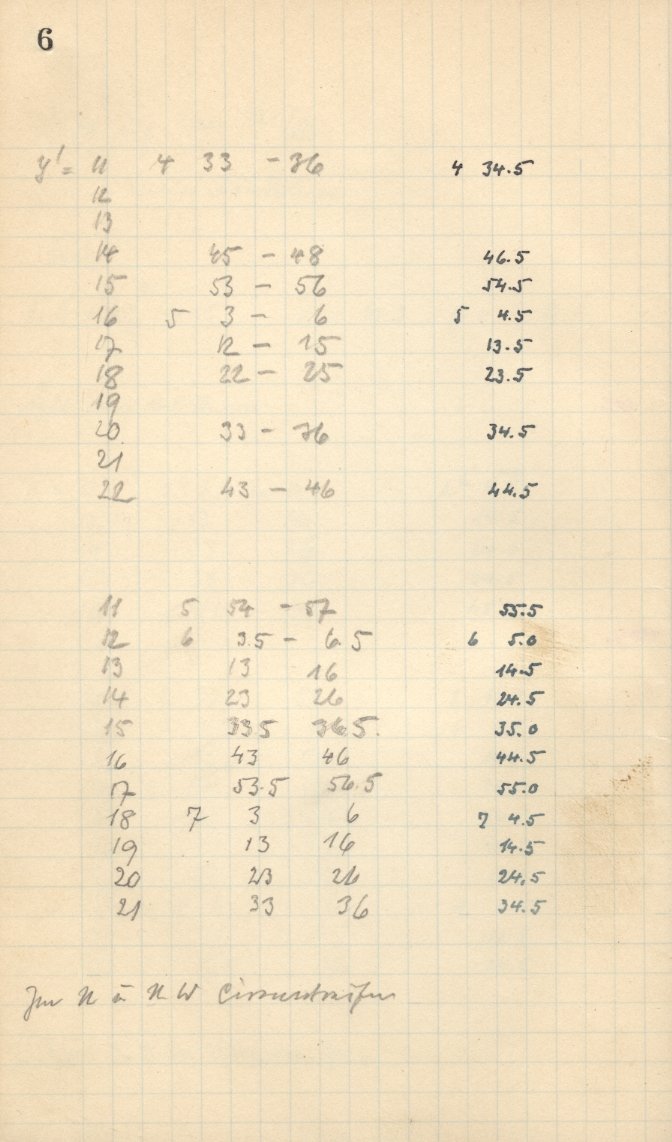 6
y' = 11 4 33 - 36 4 34.5
12
13
14 45 - 48 46.5
15 53 - 56 54.5
16 5 3 - 6 5 4.5
17 12 - 15 13.5
18 22 - 25 23.5
19
20 33 - 36 34.5
21
22 43 - 46 44.5
11 5 54 - 57 55.5
12 6 3.5 - 6.5 6 5.0
13 13 16 14.5
14 23 26 24.5
15 33.5 36.5 35.0
16 43 46 44.5
17 53.5 56.5 55.0
18 7 3 6 7 4.5
19 13 16 14.5
20 23 26 24.5
21 33 36 34.5
Im N u N W Cirrusstreifen